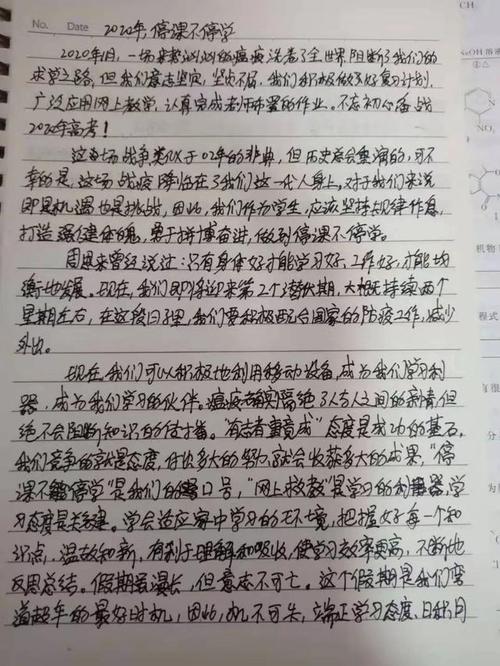 No.
Date
2020年,停课不停学
2020年1月,一场来势汹汹的瘟疫席卷了全世界,阻断了我们的
求学之路,但我们意志坚实,坚贞不屈,我们积极做好复习计划,
广泛应用网上教学,认真完成老师布置的作业。不忘初心,备战
2020年高考!
这场战争类似于02年的非典,但历史总会重演的,可不
幸的是,这场战疫降临在了我们这一代人身上,对于我们来说
即是机遇也是挑战,因此,我们作为学生,应该坚持规律作息,
打造强健体魄,勇于拼搏奋进,做到停课不停学。
周恩来曾经说过:只有身体好才能学习好、工作好,才能均
衡地发展。现在,我们即将迎来第2个潜伏期,大概持续两个
星期左右,在这段日子里,我们要积极配合国家的防疫工作,减少
外出。
现在,我们可以积极地利用移动设备,成为我们学习利
器,成为我们学习的伙伴。瘟疫确实隔绝了人与人之间的亲情,但
绝不会阻断知识的传播。"有志者事竟成"态度是成功的基石,
我们竞争的就是态度,付出多大的努力,就会收获多大的成果,"停
课不停学"是我们的口号,"网上教教"是学习的利器,学
习态度是关键。学会适应家中学习的环境,把握好每一个知
识点,温故知新,有利于理解和吸收,使学习效率更高,不断地
反思总结。假期虽漫长,但意志不可亡。这个假期是我们弯
道超车的最好时机,因此,机不可失,端正学习态度、日积月
CH
NaOH溶液
NO₂
机物
程式
有